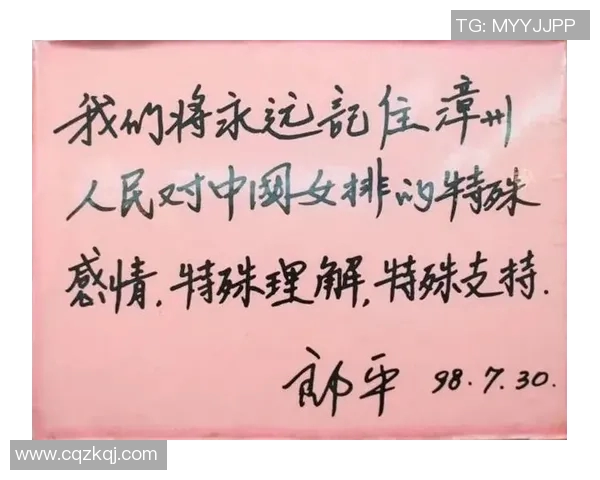 TG: MYYJJPP
我们将永远記住漳州
人民对中國女排的特殊
感情，特殊理解，特殊支持.
郎平 98.7.30.
www.cqzkqj.com